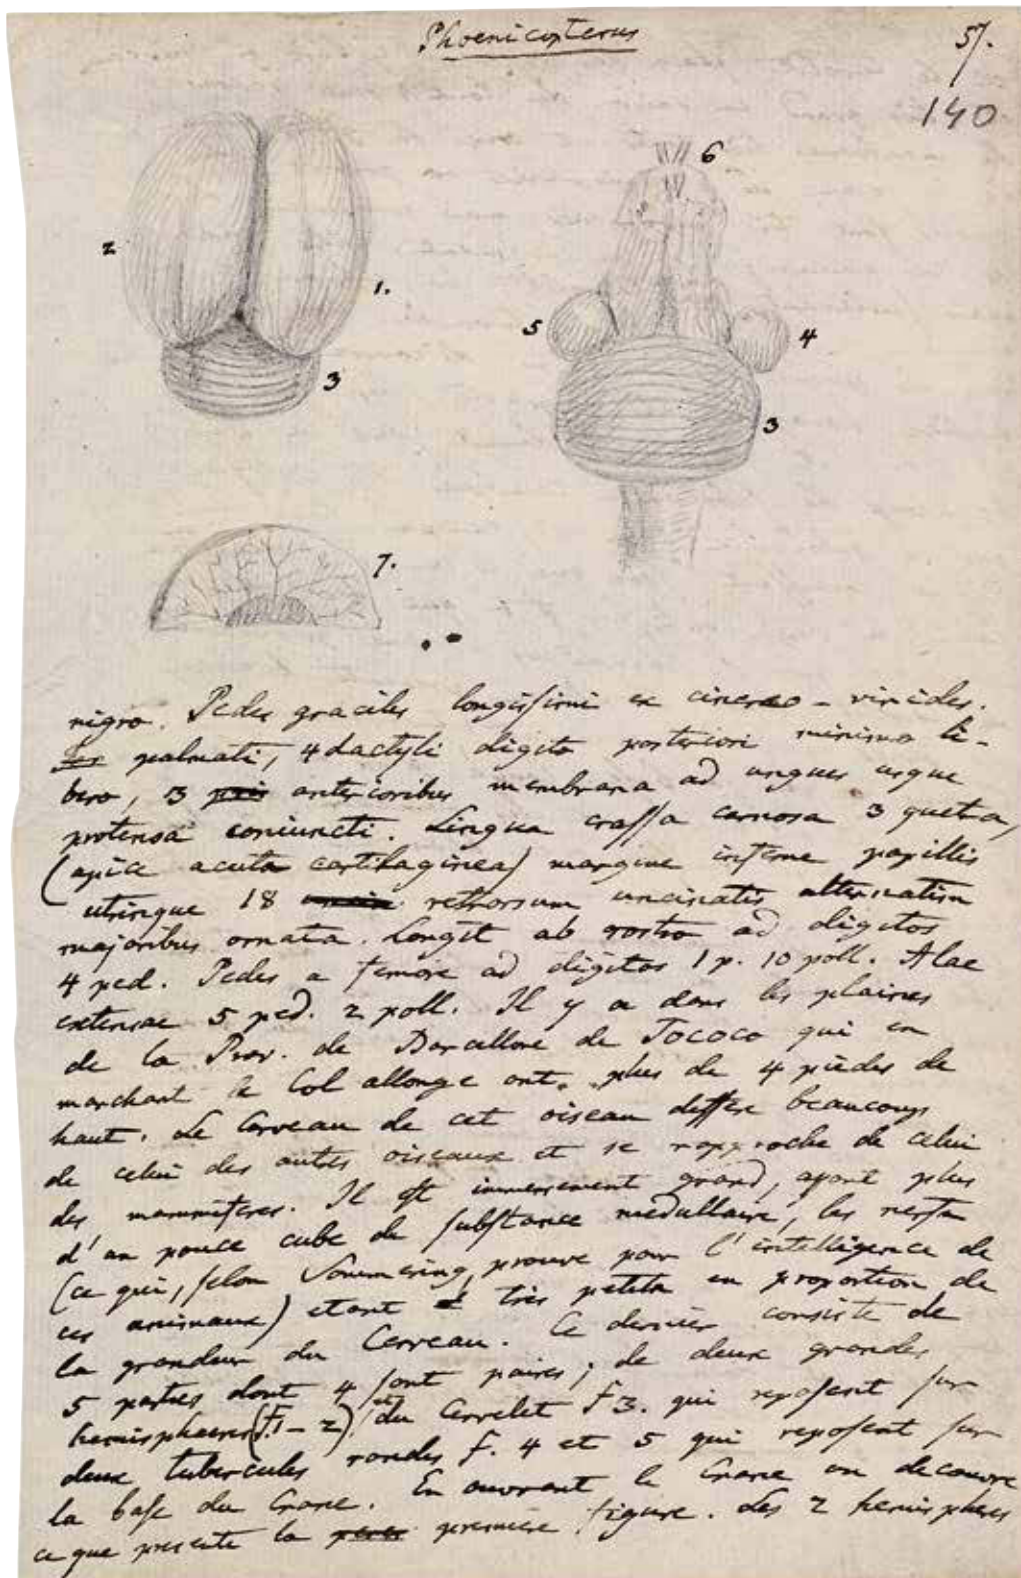 Phoenicopterus
57.
140
2
1.
3
6
5
4
3
7.
nigro. Pedes graciles longissimi ex cinereo-virides.
palmati, 4dactyli digito posteriori minimo li-
bero, 3 anterioribus membrana ad ungues usque
protensa coniuncti. Lingua crassa carnosa 3 quetra,
(apice acuta cartilaginea) margine inferne papillis
utrinque 18 retrorsum uncinatis alternatim
majoribus ornata. Longit ab rostro ad digitos
4 ped. Pedes a femore ad digitos 1 p. 10 poll. Alae
extensae 5 ped. 2 poll. Il y a dans les plaines
de la Prov. de Barcellone de Tococo qui en
marchant le Col allongé ont plus de 4 pieds de
haut. Le Cerveau de cet oiseau differe beaucoup
de celui des autres oiseaux et se rapproche de celui
des mammiferes. Il est immensement grand, ayant plus
d'un pouce cube de substance medullaire, les nerfs
(ce qui, selon Sömmering, prouve pour l'intelligence de
ces animaux) etant très petits en proportion de
la grandeur du Cerveau. Ce dernier consiste de
5 parties dont 4 sont paires; de deux grandes
hemispheres (f. 1-2) et du Cervelet f 3. qui reposent sur
deux tubercules rondes f. 4 et 5 qui reposent sur
la base du Crane. En ouvrant le Crane on decouvre
ce que presente la premiere figure. Les 2 hemispheres